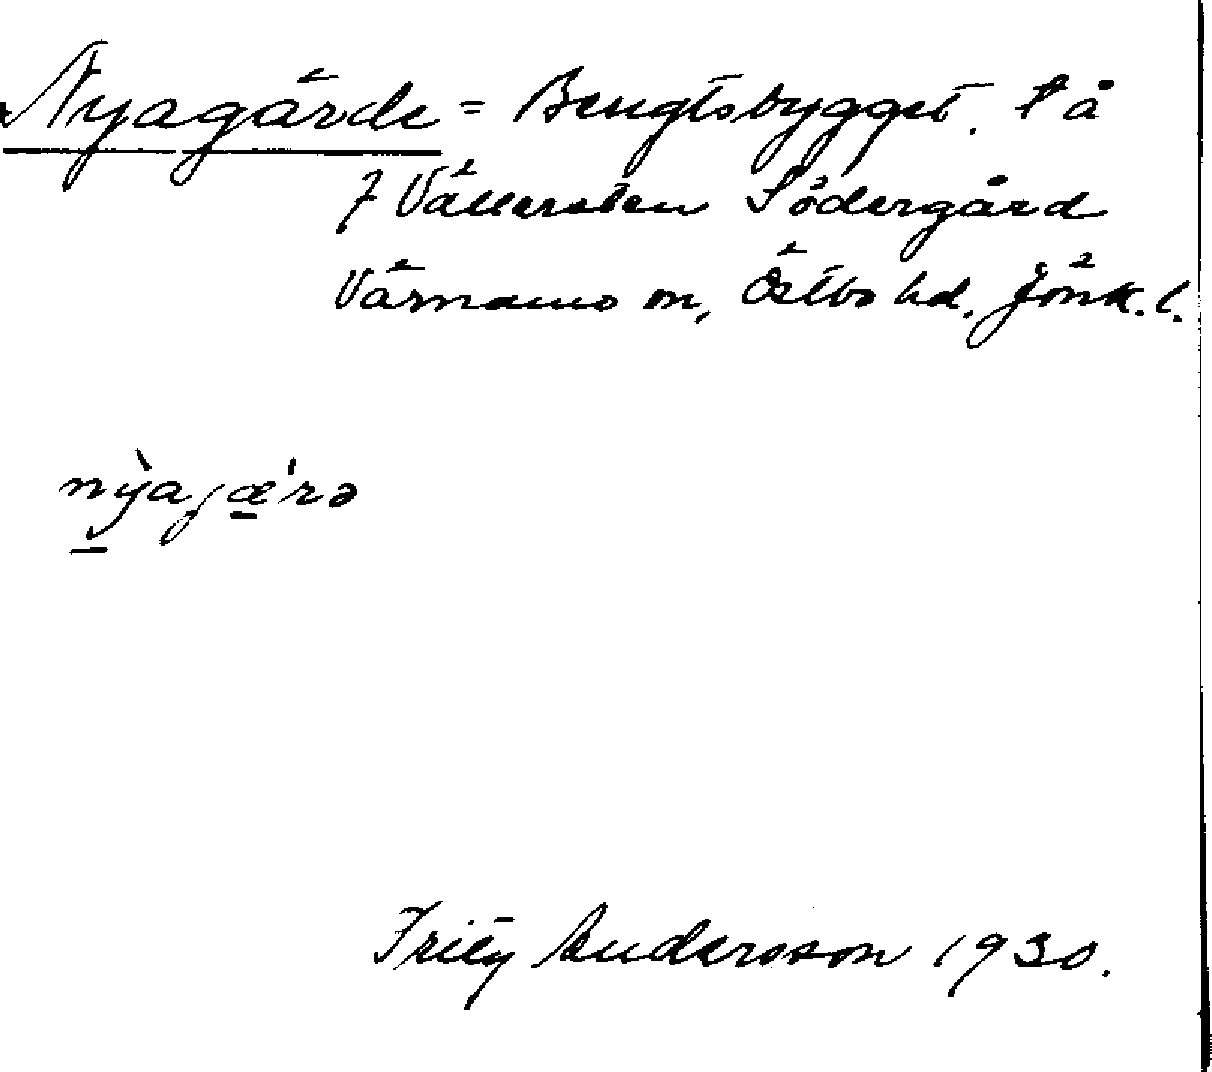 Nyagärde = Bengtsbygget. På
7 Vällersten Södergård
Värnamo sn, Östbo hd. Jönk. l.
nỳaɟæ̠'rə
Fritz Andersson 1930.